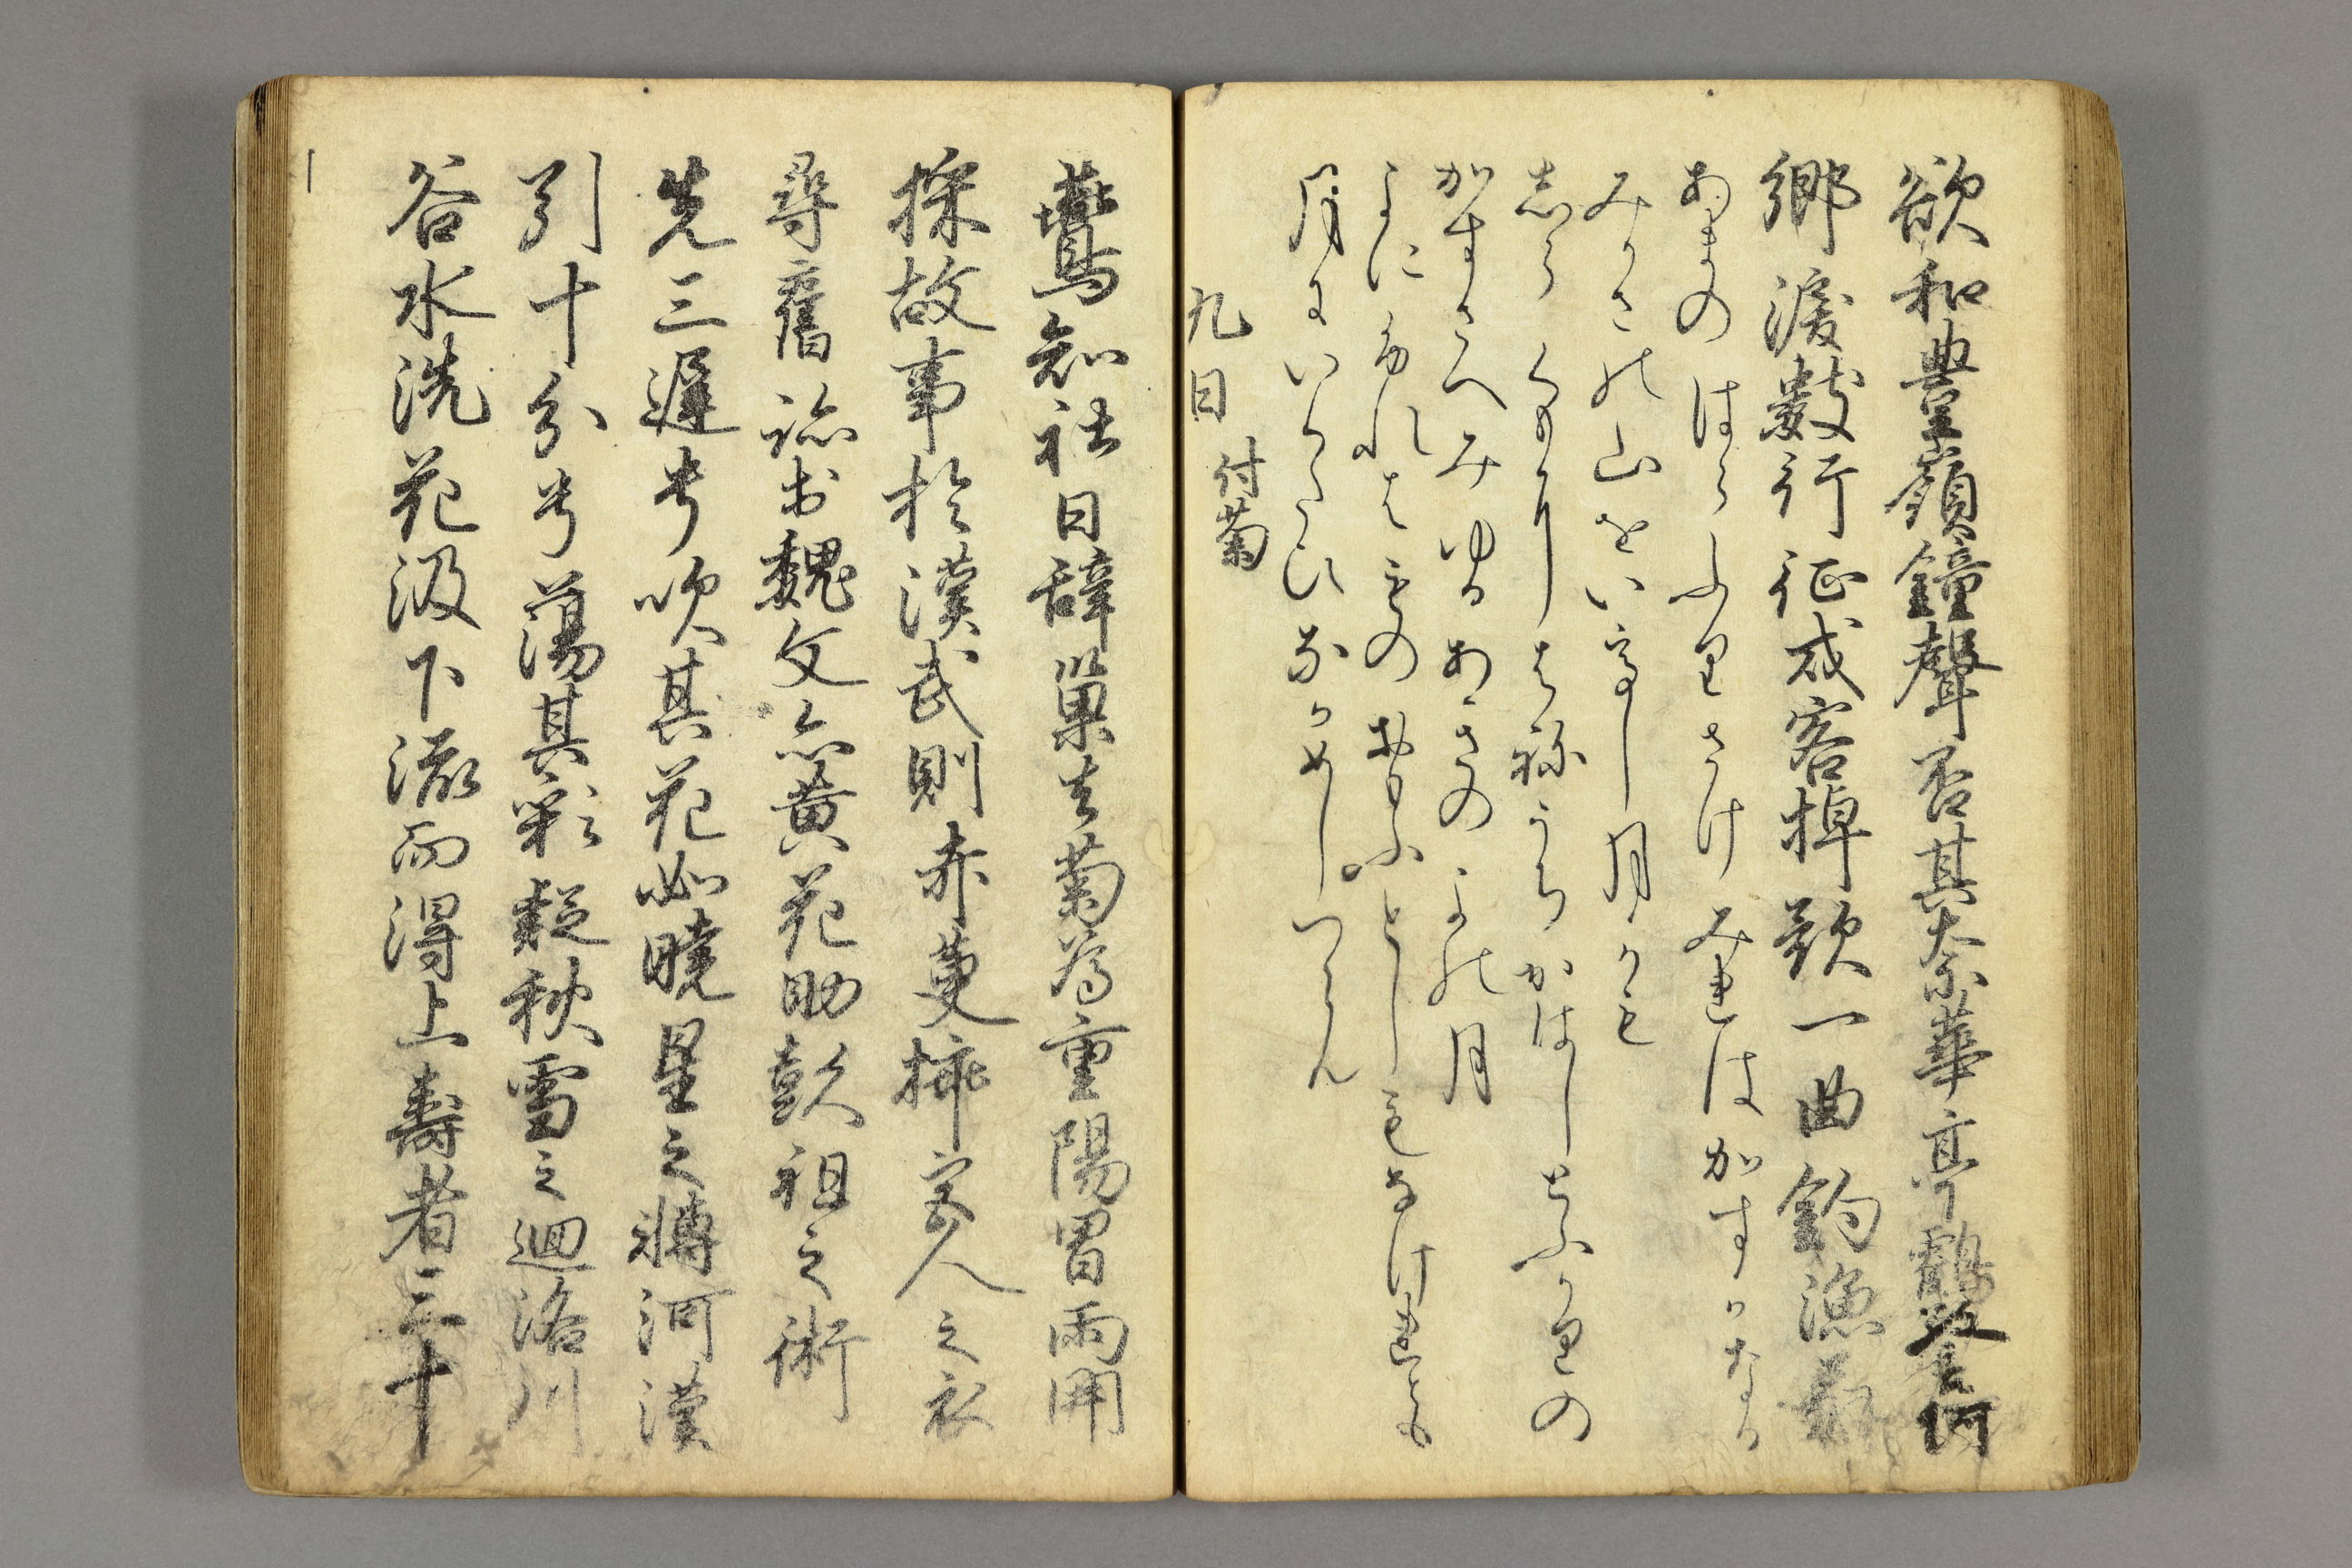 欲和豊嶺鐘聲否其奈華亭鶴警何
郷涙數行征戍客棹歌一曲釣漁翁
あまのはらふりさけみれはかすかなる
みかさの山をいてし月かも
志らくもにはねうちかはしとふかりの
かすさへみゆるあきのよの月
よにふれはものおもふとしもなけれとも
月にいくたひなかめしつらん
九日 付菊
鷰知社日辞巣去菊為重陽冒雨開
採故事於漢武則赤萸插宮人之衣
尋舊跡於魏文亦黄花助彭祖之術
先三遅兮吹其花如曉星之轉河漢
引十分兮蕩其彩疑秋雪之廻洛川
谷水洗花汲下流而得上壽者三十